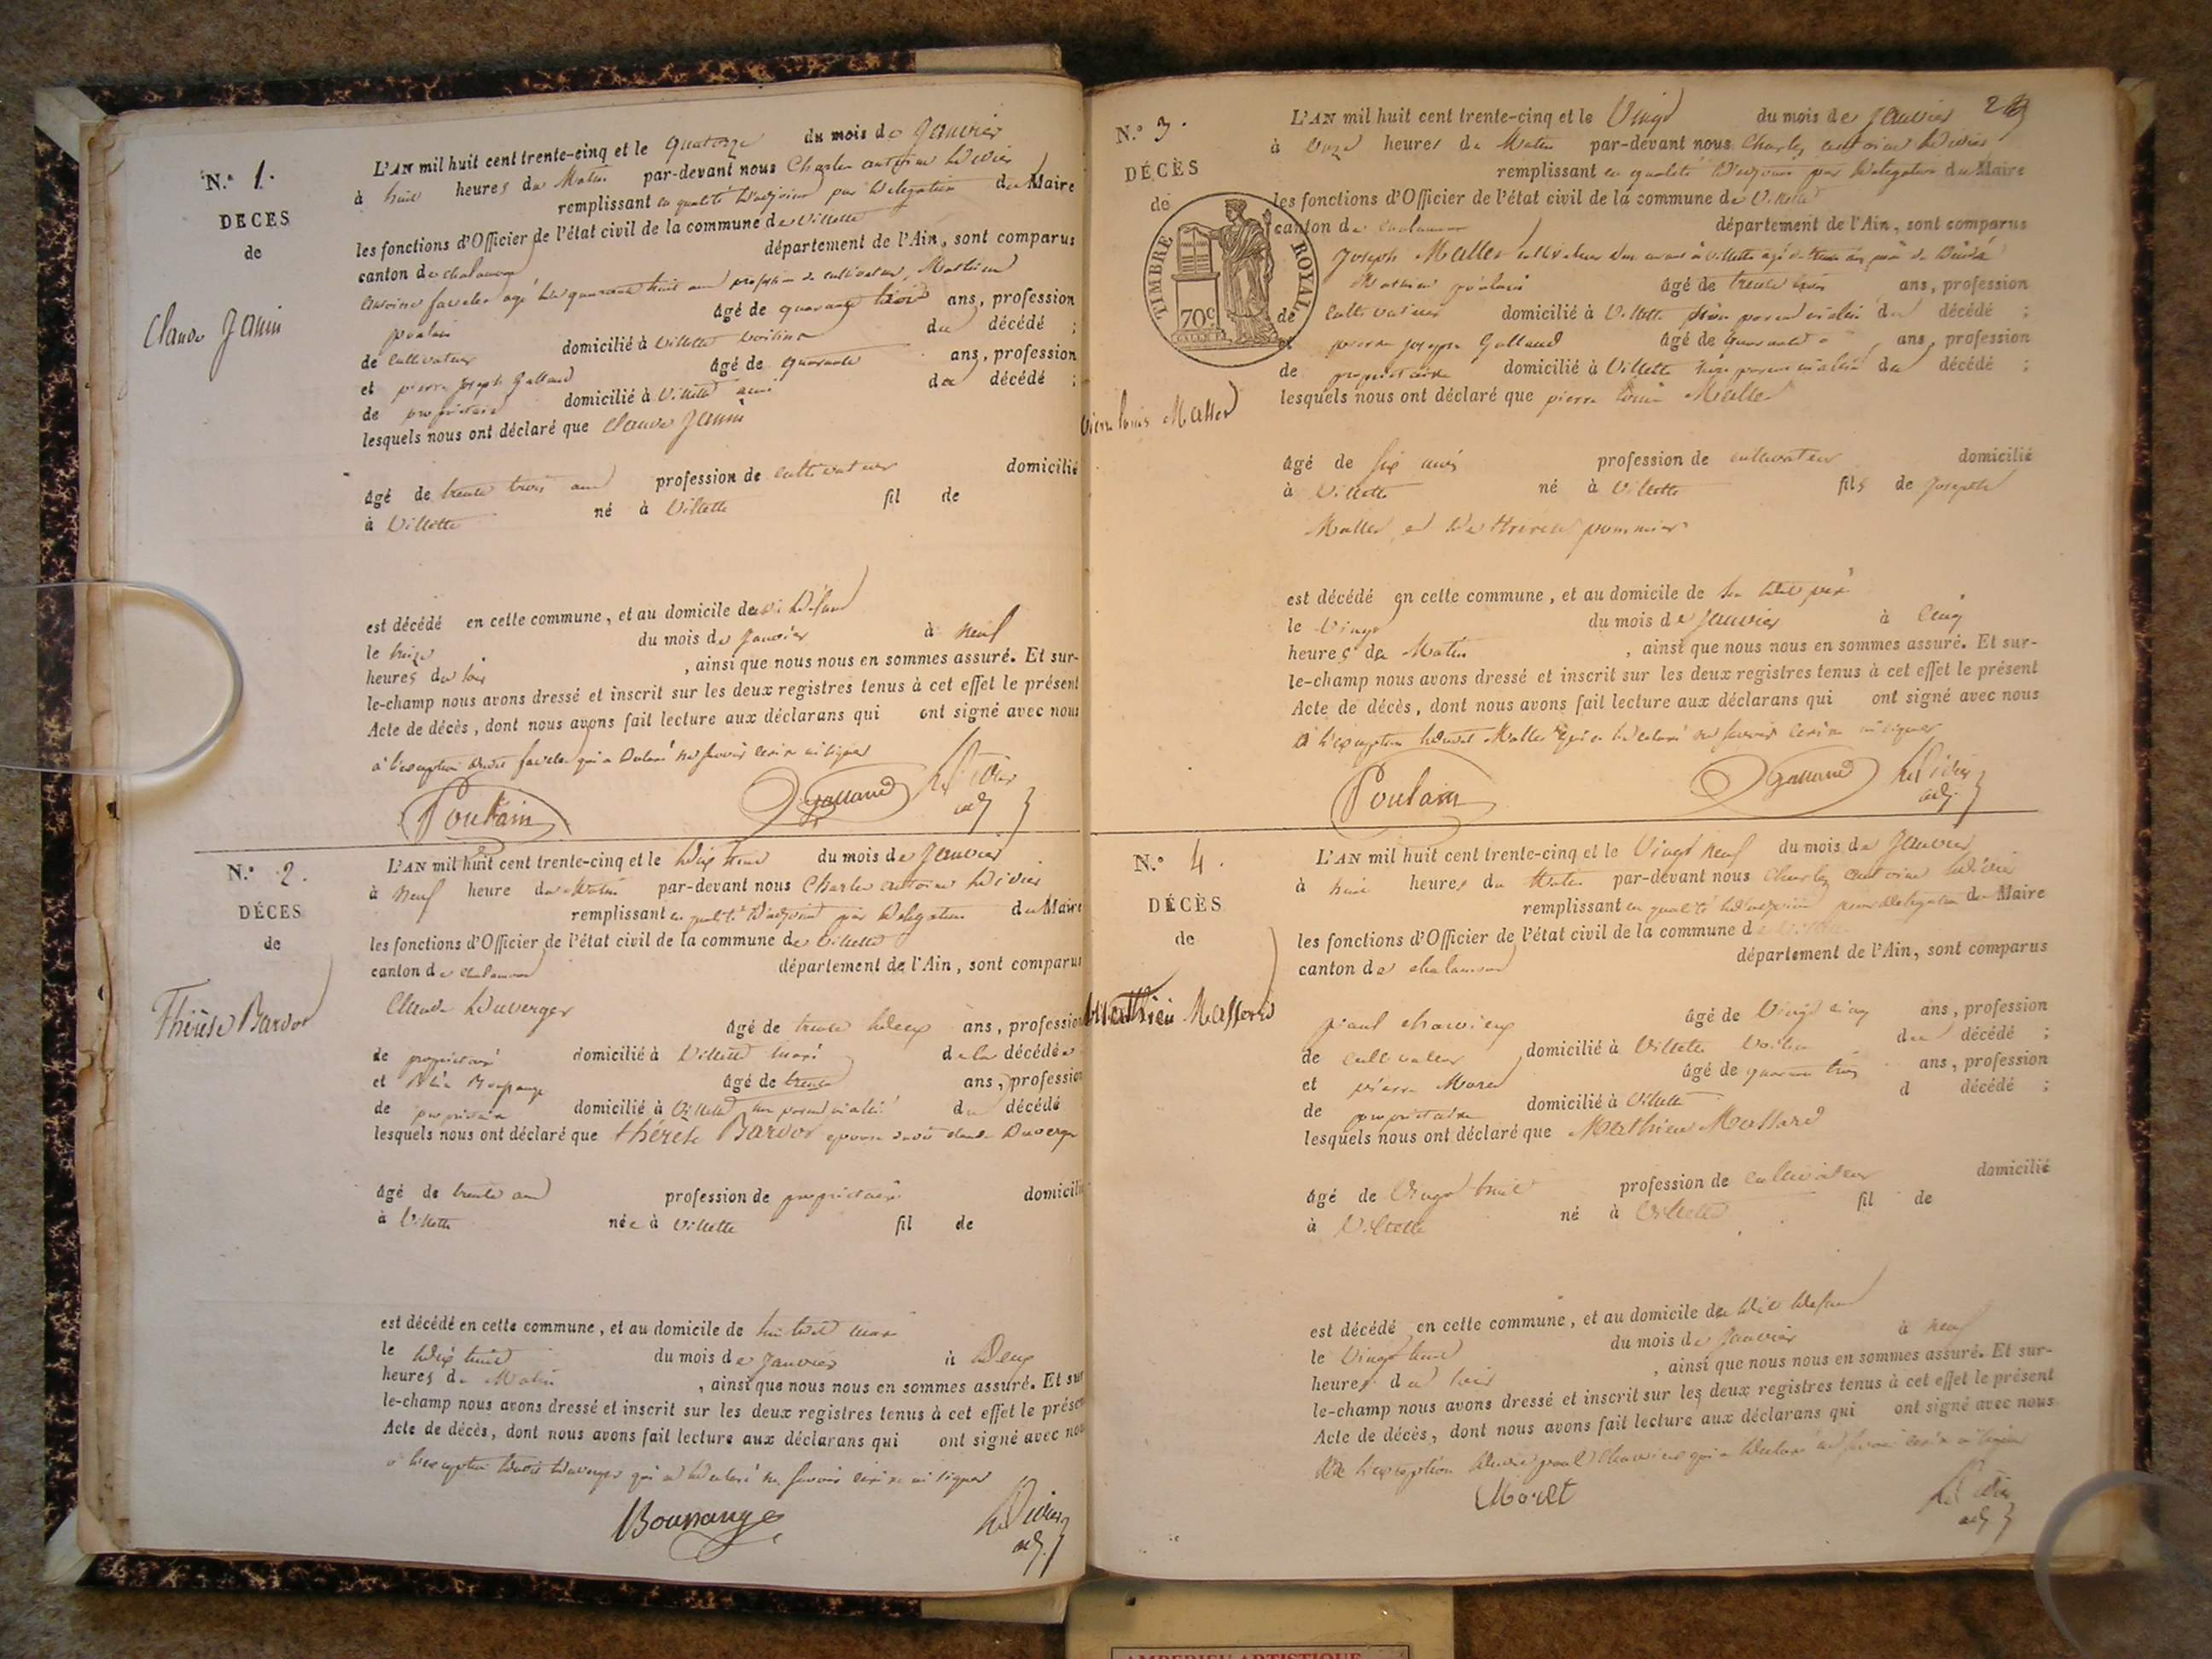 N.° 1.
DECES
de
Claude Janin
L'AN mil huit cent trente-cinq et le quatorze du mois de Janvier
à huit heures du Matin par-devant nous Charles antoine Didier
remplissant en qualité d'adjoint par délégation du Maire
les fonctions d'Officier de l'état civil de la commune de Villette
canton de chalamont département de l'Ain, sont comparus
antoine favelet agé de quarante huit ans profession de cultivateur, Mathieu
poulain âgé de quarante trois ans, profession
de cultivateur domicilié à Villette voisins du décédé ;
et pierre Joseph Galland âgé de quarante ans, profession
de propriétaire domicilié à Villette ami du décédé ;
lesquels nous ont déclaré que Claude Janin
âgé de trente trois ans profession de cultivateur domicilié
à Villette né à Villette fil de
est décédé en cette commune, et au domicile de défunt
le treize du mois de Janvier à neuf
heures du soir , ainsi que nous nous en sommes assuré. Et sur-
le-champ nous avons dressé et inscrit sur les deux registres tenus à cet effet le présent
Acte de décès, dont nous avons fait lecture aux déclarans qui ont signé avec nous
à l'exception dudit favelet qui a déclaré ne savoir écrire ni signer
Poulain Galland Didier
adj
N.° 2.
DÉCES
de
Thérèse Bardot
L'AN mil huit cent trente-cinq et le dix huit du mois de Janvier
à Neuf heure du Matin par-devant nous Charles antoine Didier
remplissant en qualité d'adjoint par délégation du Maire
les fonctions d'Officier de l'état civil de la commune de Villette
canton de chalamont département de l'Ain, sont comparus
Claude Duverger
âgé de trente deux ans, profession
de propriétaire domicilié à Villette mari de la décédée
et âgé de trente ans, profession
de propriétaire domicilié à Villette non parent ni allié du décédé
lesquels nous ont déclaré que thérèse Bardot épouse dudit claude Duverger
âgé de trente ans profession de propriétaire domicilié
à Villette née à Villette fil de
est décédé en cette commune, et au domicile de son dit mari
le dix huit du mois de Janvier à Deux
heures du Matin , ainsi que nous nous en sommes assuré. Et sur
le-champ nous avons dressé et inscrit sur les deux registres tenus à cet effet le présen
Acte de décès, dont nous avons fait lecture aux déclarans qui ont signé avec nou
à l'exception dudit Duverger qui a déclaré ne savoir écrire ni signer
Didier
adj.
N.° 3.
DÉCÈS
de
TIMBRE ROYAL
70c
pierre louis Mallet
L'AN mil huit cent trente-cinq et le Vingt du mois de Janvier
à onze heures du Matin par-devant nous Charles antoine Didier
remplissant en qualité d'adjoint par délégation du Maire
les fonctions d'Officier de l'état civil de la commune de Villette
canton de chalamont département de l'Ain, sont comparus
Joseph Mallet cultivateur demeurant à Villette agé de trente ans père du décédé
Mathieu poulain âgé de trente ans, profession
de cultivateur domicilié à Villette non parent ni allié du décédé ;
et pierre Joseph Galland âgé de quarante ans, profession
de propriétaire domicilié à Villette non parent ni allié du décédé ;
lesquels nous ont déclaré que pierre louis Mallet
âgé de six profession de cultivateur domicilié
à Villette né à Villette fils de Joseph
Mallet et de thérèse pommier
est décédé en cette commune, et au domicile de son dit père
le Vingt du mois de Janvier à Cinq
heures du Matin , ainsi que nous nous en sommes assuré. Et sur-
le-champ nous avons dressé et inscrit sur les deux registres tenus à cet effet le présent
Acte de décès, dont nous avons fait lecture aux déclarans qui ont signé avec nous
à l'exception dudit Mallet qui a déclaré ne savoir écrire ni signer
Poulain Galland Didier
adj.
N.° 4.
DÉCÈS
de
Matthieu Massard
L'AN mil huit cent trente-cinq et le Vingt neuf du mois de Janvier
à huit heures du Matin par-devant nous Charles antoine Didier
remplissant en qualité d'adjoint par délégation du Maire
les fonctions d'Officier de l'état civil de la commune de
canton de chalamont département de l'Ain, sont comparus
paul âgé de Vingt cinq ans, profession
de cultivateur domicilié à Villette voisin du décédé ;
et pierre Moret âgé de quarante trois ans, profession
de propriétaire domicilié à Villette d décédé ;
lesquels nous ont déclaré que Mathieu Massard
âgé de Vingt huit profession de cultivateur domicilié
à Villette né à Villette fil de
est décédé en cette commune, et au domicile du dit défunt
le Vingt huit du mois de Janvier à neuf
heures du soir , ainsi que nous nous en sommes assuré. Et sur-
le-champ nous avons dressé et inscrit sur les deux registres tenus à cet effet le présent
Acte de décès, dont nous avons fait lecture aux déclarans qui ont signé avec nous
l'exception dudit paul qui a déclaré ne savoir écrire ni signer
Moret Didier
adj
AMBERIEU ARTISTIQUE